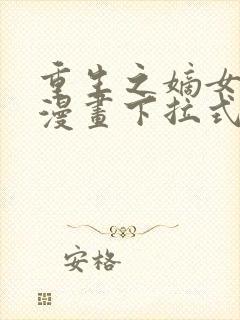 重生之嫡女
漫畫下拉式
安格